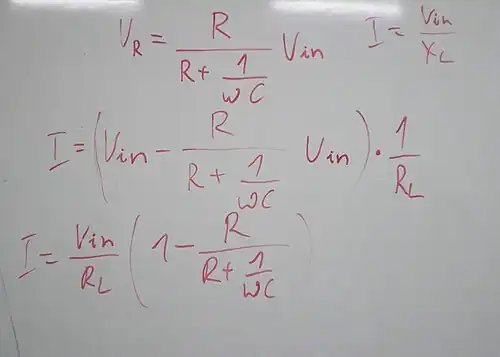 V_R = R / (R + 1/(ωC)) Vin    I = Vin / X_L
I = (Vin - R / (R + 1/(ωC)) Vin) · 1/R_L
I = Vin/R_L (1 - R / (R + 1/(ωC)))